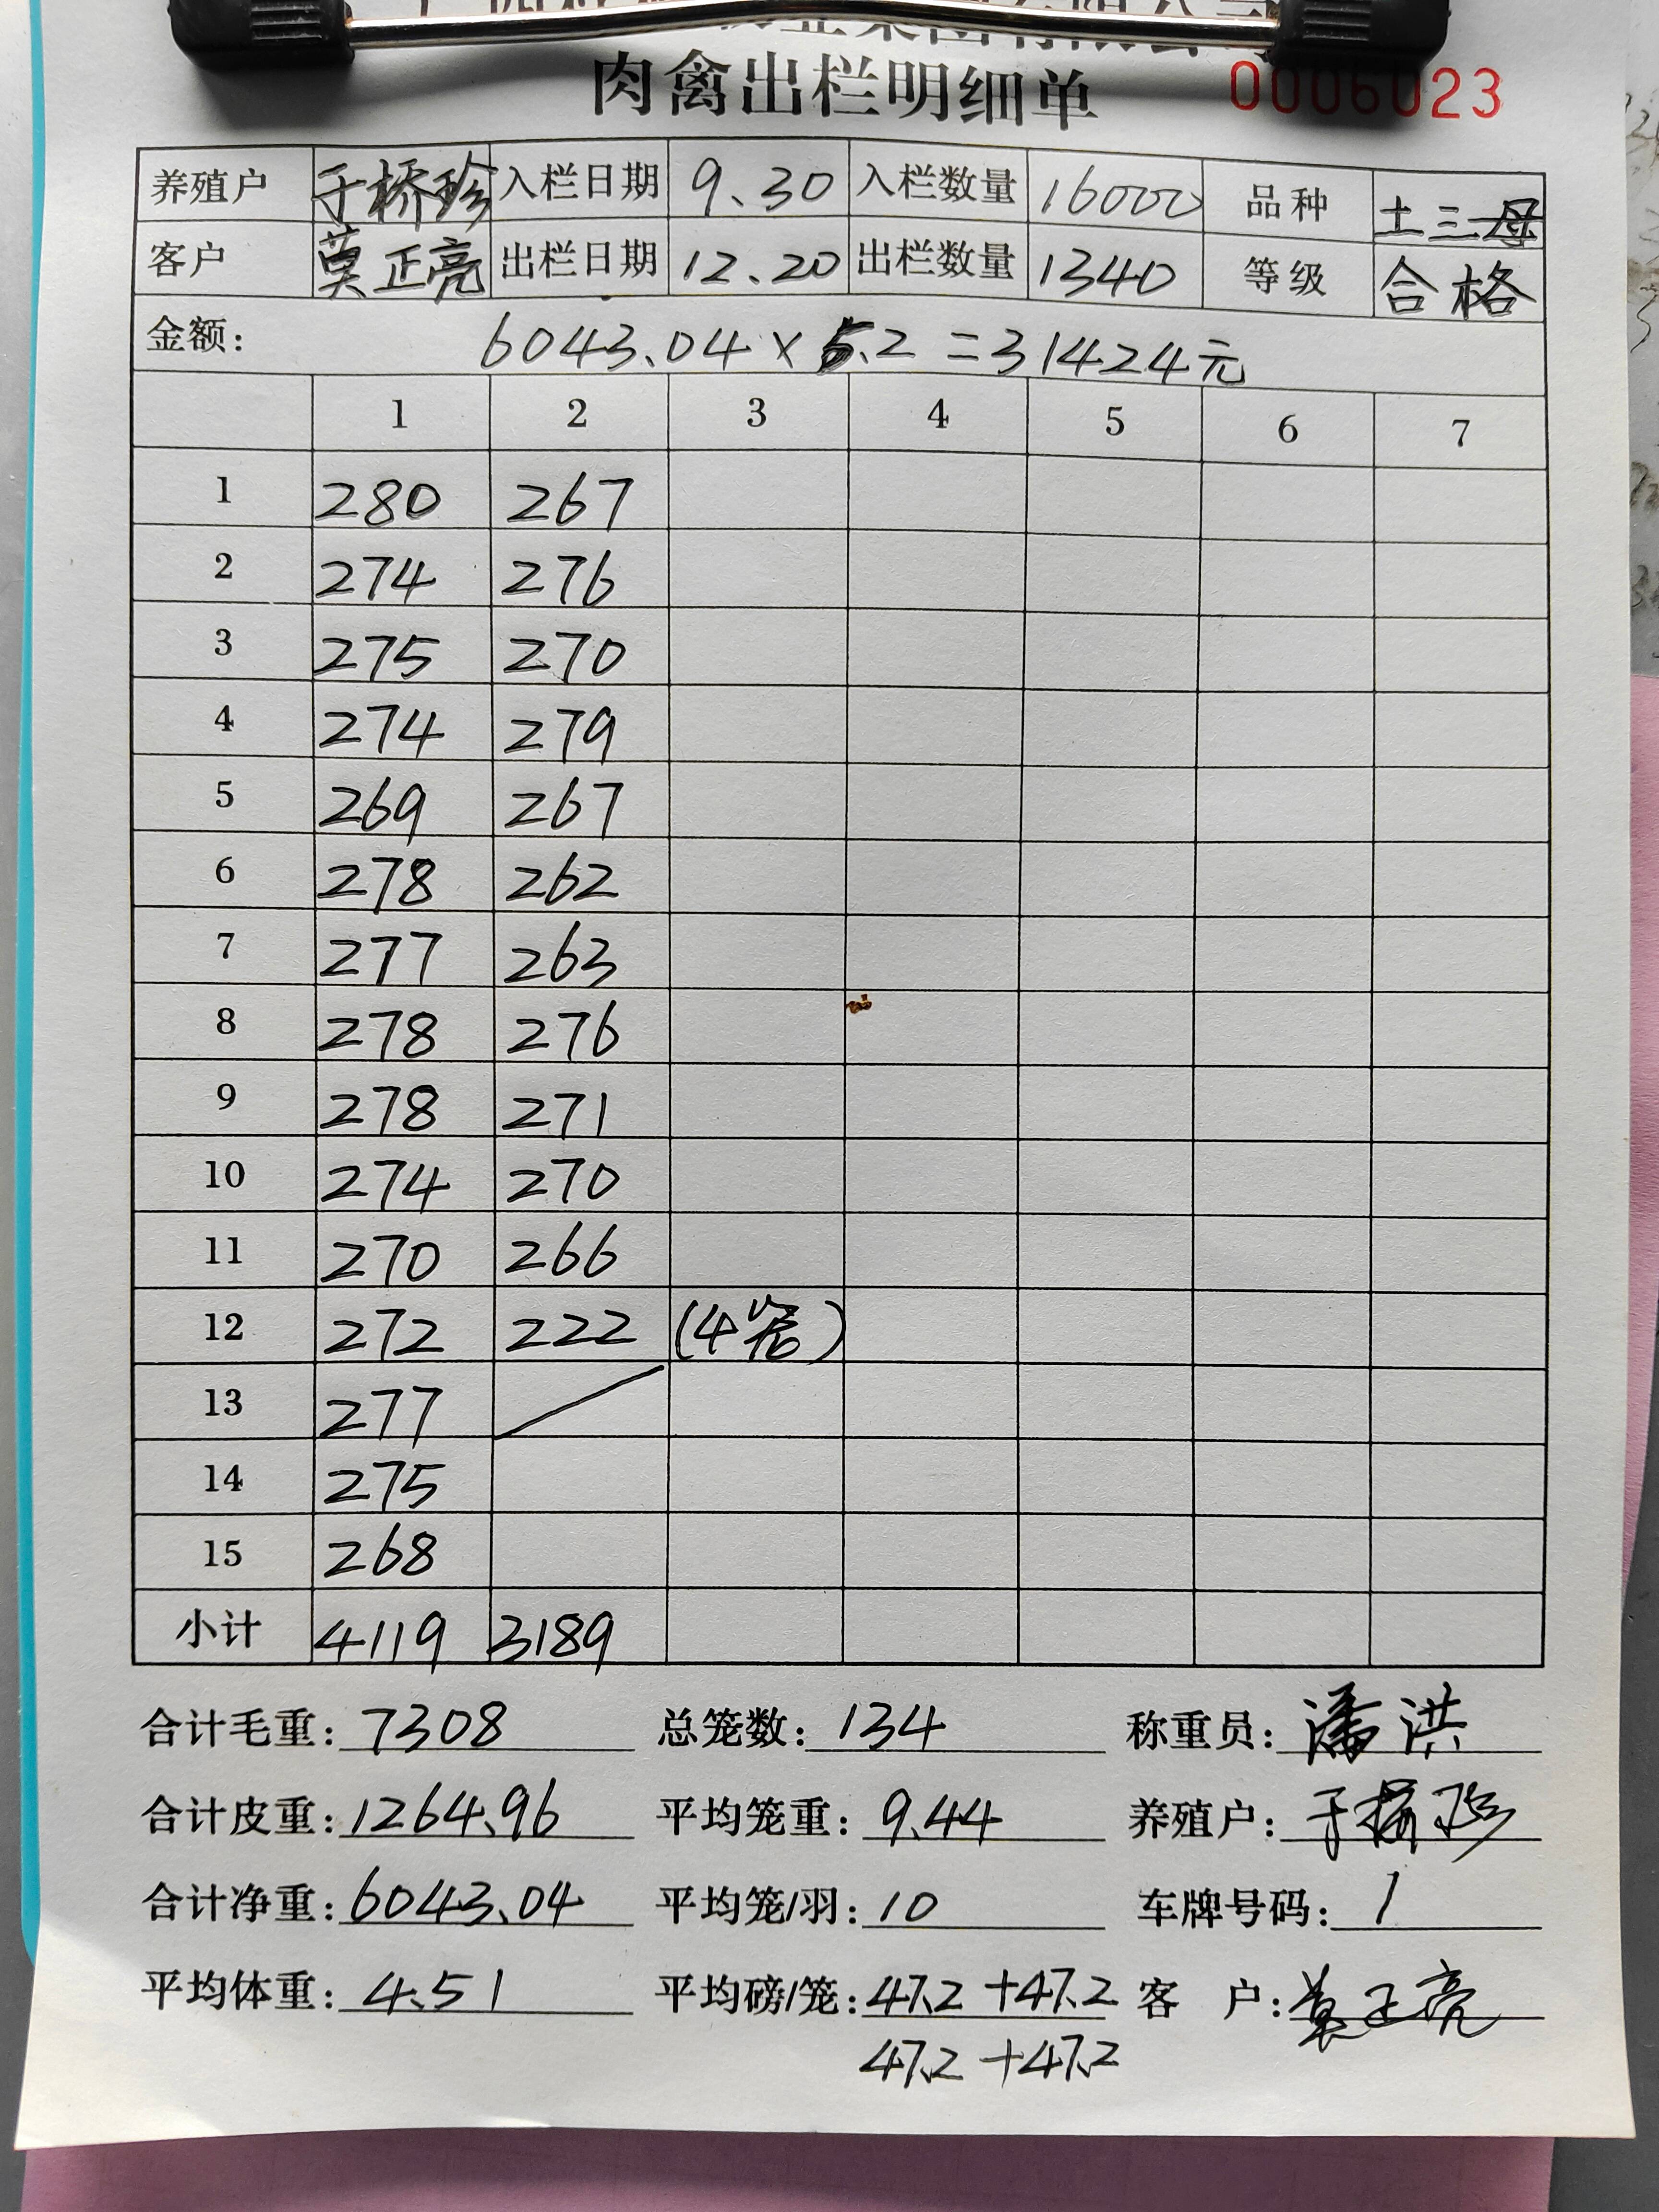 肉禽出栏明细单 0006023
养殖户 于桥珍 入栏日期 9.30 入栏数量 16000 品种 土三母
客户 莫正亮 出栏日期 12.20 出栏数量 1340 等级 合格
金额: 6043.04×5.2=31424元
1 2 3 4 5 6 7
1 280 267
2 274 276
3 275 270
4 274 279
5 269 267
6 278 262
7 277 263
8 278 276
9 278 271
10 274 270
11 270 266
12 272 222 (4笼)
13 277
14 275
15 268
小计 4119 3189
合计毛重: 7308 总笼数: 134 称重员: 潘洪
合计皮重: 1264.96 平均笼重: 9.44 养殖户: 于桥珍
合计净重: 6043.04 平均笼/羽: 10 车牌号码: 1
平均体重: 4.51 平均磅/笼: 47.2+47.2 客 户: 莫正亮
47.2+47.2